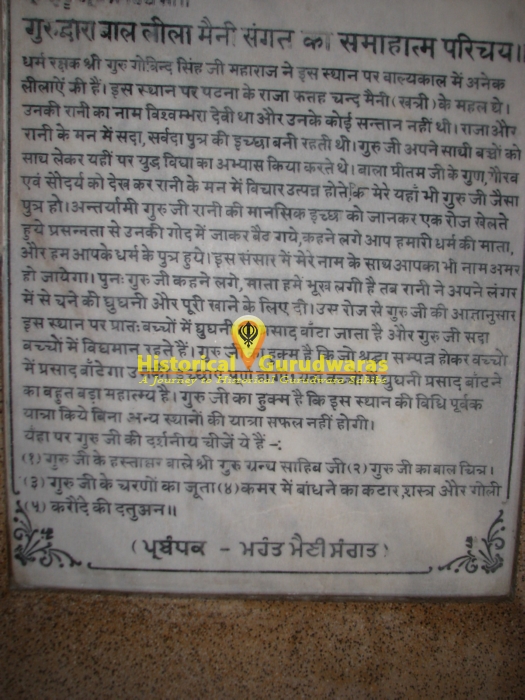 गुरुद्वारा बाल लीला मैनी संगत का समाहात्म परिचय।।
धर्म रक्षक श्री गुरु गोबिन्द सिंह जी महाराज ने इस स्थान पर बाल्यकाल में अनेक
लीलाऐं की हैं। इस स्थान पर पटना के राजा फतह चन्द मैनी (खत्री) के महल थे।
उनकी रानी का नाम विश्वम्भरा देवी था और उनके कोई सन्तान नहीं थी। राजा और
रानी के मन में सदा, सर्वदा पुत्र की इच्छा बनी रहती थी। गुरु जी अपने साथी बच्चों को
साथ लेकर यहीं पर युद्ध विद्या का अभ्यास किया करते थे। बाला प्रीतम जी के गुण, गौरव
एवं सौंदर्य को देख कर रानी के मन में विचार उत्पन्न होने कि मेरे यहां भी गुरु जी जैसा
पुत्र हो। अन्तर्यामी गुरु जी रानी की मानसिक इच्छा को जानकर एक रोज खेलते
हुये प्रसन्नता से उनकी गोद में जाकर बैठ गये, कहने लगे आप हमारी धर्म की माता,
और हम आपके धर्म के पुत्र हुये। इस संसार में मेरे नाम के साथ आपका भी नाम अमर
हो जायेगा। पुनः गुरु जी कहने लगे, माता हमें भूख लगी है तब रानी ने अपने लंगर
में से चने की घुघनी और पूरी खाने के लिए दी। उस रोज से गुरु जी की आज्ञानुसार
इस स्थान पर प्रातः बच्चों में घुघनी प्रसाद बाँटा जाता है और गुरु जी सदा
बच्चों में विद्यमान रहते हैं। गुरु हुक्म है कि जो श्रद्धा सम्पन्न होकर बच्चों
में प्रसाद बाँटेगा घुघनी प्रसाद बाँटने
का बहुत बड़ा महात्म्य है। गुरु जी का हुक्म है कि इस स्थान की विधि पूर्वक
यात्रा किये बिना अन्य स्थानों की यात्रा सफल नहीं होगी।
यहां पर गुरु जी की दर्शनीय चीजें ये हैं -:
(१) गुरु जी के हस्ताक्षर वाले श्री गुरु ग्रन्थ साहिब जी (२) गुरु जी का बाल चित्र।
(३) गुरु जी के चरणों का जूता (४) कमर में बांधने का कटार, शस्त्र और गोली
(५) करौंदे की दतुअन॥
(ਪ੍ਰਬੰਧਕ - ਮਹੰਤ ਮੈਣੀ ਸੰਗਤ)
Historical Gurudwaras
A Journey to Historical Gurudwara Sahibs